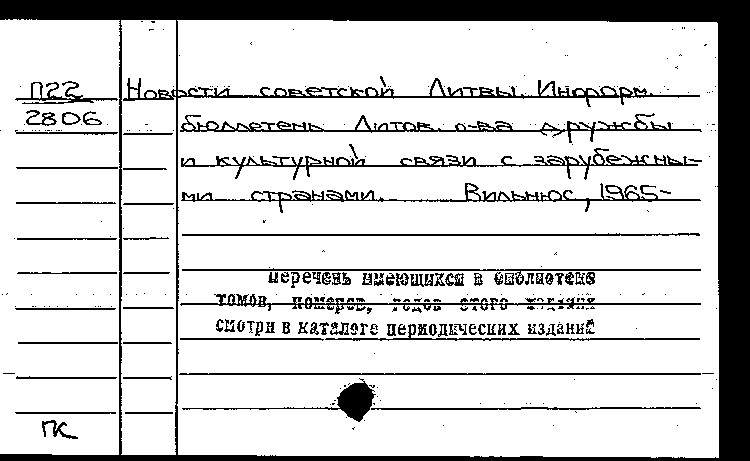 П22 Новости советской Литвы. Информ.
2806 бюллетень Литов. о-ва дружбы
и культурной связи с зарубежны-
ми странами. Вильнюс, 1965-
Перечень имеющихся в библиотеке
томов, номеров, годов этого издания
смотри в каталоге периодических изданий
ПК